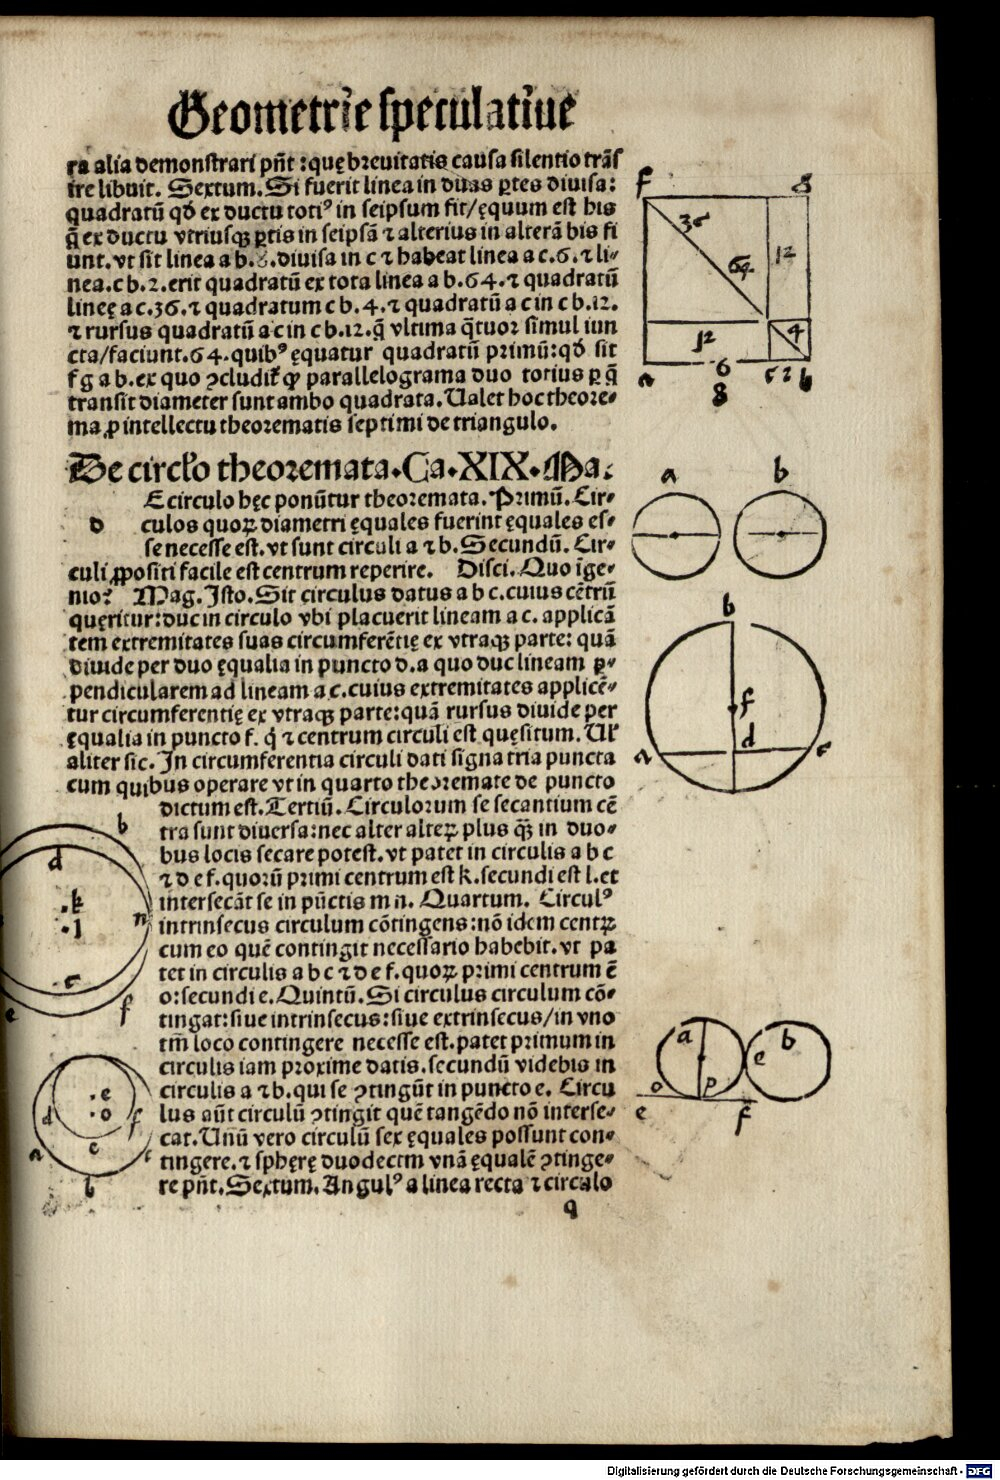 Geometrīe speculatīue
ra alia demonstrari pn̄t : quę breuitatis causa silentio trās
ire libuit. Sextum. Si fuerit linea in duas ꝑtes diuisa:
quadratū qd̄ ex ductu totiꝰ in seipsum fit/ęquum est his
q̄ ex ductu vtriusqꝫ ꝑtis in seipsā ⁊ alterius in alterā bis fi
unt. vt sit linea a b.8.diuisa in c ⁊ habeat linea a c.6.⁊ li-
nea.c b.2.erit quadratū ex tota linea a b.64.⁊ quadratū
lineę a c.36.⁊ quadratum c b.4.⁊ quadratū a c in c b.12.
⁊ rursus quadratū a c in c b.12.q̄ vltima q̄tuor simul iun
cta/faciunt.64.quibꝰ ęquatur quadratū primū:qd̄ sit
f g a b.ex quo ꝯcluditᷣ ꝙ parallelograma duo totius ꝑ q̄
transit diameter sunt ambo quadrata. Ualet hoc theore-
ma ꝓ intellectu theorematis septimi de triangulo.
De circl̓o theoremata.Ca.XIX.Ma:
d Ecirculo hęc ponūtur theoremata. Primū. Cir-
culos quoꝝ diametri ęquales fuerint ęquales es-
se necesse est. vt sunt circuli a ⁊ b. Secundū. Cir-
culi ꝓpositi facile est centrum reperire. Disci. Quo īge-
nio? Mag. Isto. Sit circulus datus a b c.cuius cētrū
quęritur: duc in circulo vbi placuerit lineam a c. applicā
tem extremitates suas circumferētię ex vtraqꝫ parte: quā
diuide per duo ęqualia in puncto d.a quo duc lineam ꝑ-
pendicularem ad lineam a c.cuius extremitates applicē-
tur circumferentię ex vtraqꝫ parte:quā rursus diuide per
ęqualia in puncto f. q̇ ⁊ centrum circuli est quęsitum. Ul̓
aliter sic. In circumferentia circuli dati signa tria puncta
cum quibus operare vt in quarto theoremate de puncto
dictum est. Tertiū. Circulorum se secantium cē
tra sunt diuersa:nec alter alteꝝ plus qꝫ̄ in duo-
bus locis secare potest. vt patet in circulis a b c
⁊ d e f. quorū primi centrum est k. secundi est l. et
intersecāt se in pūctis m n. Quartum. Circulꝰ
intrinsecus circulum cōtingens: nō idem centꝝ
cum eo quē contingit necessario habebit. vt pa
tet in circulis a b c ⁊ d e f. quoꝝ primi centrum ē
o: secundi e. Quintū. Si circulus circulum cō-
tingat: siue intrinsecus: siue extrinsecus/in vno
tm̄ loco contingere necesse est. patet primum in
circulis iam proxime datis. secundū videbis in
circulis a ⁊ b. qui se ꝯtingūt in puncto e. Circu
lus aūt circulū ꝯtingit quē tangēdo nō interse-
cat. Unū vero circulū sex ęquales possunt con-
tingere. ⁊ sphęrę duodecim vnā ęqualē ꝯtinge-
re pn̄t. Sextum. Angulꝰ a linea recta ⁊ circulo
q
f g
36
64
12
12
4
a 6 c 2 b
8
a b
b
f
d
a c
b
d
k
l
n
c
e f
e
o
d f
c
a c
b
a b
e
o p
e f
Digitalisierung gefördert durch die Deutsche Forschungsgemeinschaft - DFG